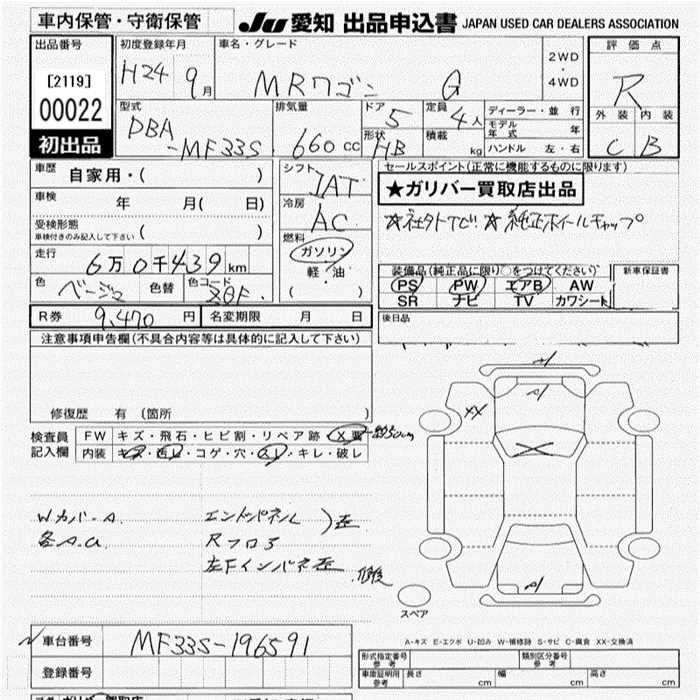 車内保管・守衛保管
JU 愛知 出品申込書 JAPAN USED CAR DEALERS ASSOCIATION
出品番号
[2119]
00022
初出品
初度登録年月
H24 9月
車名・グレード
MRワゴン G
2WD
・
4WD
評価点
R
外装 内装
C B
型式
DBA
-MF33S
排気量
660 cc
ドア
5
形状
HB
定員
4人
積載 kg
ディーラー・並行
モデル年式 年
ハンドル 左・右
車歴
自家用・( )
車検
年 月( 日)
受検形態
車検付きのみ記入して下さい ( )
走行
6万0千439km
色
ベージュ
色替
色コード
ZQF
シフト
IAT
冷房
AC
燃料
ガソリン
軽・油
( )
セールスポイント(正常に機能するものに限ります)
★ガリバー買取店出品
☆純正ホイールキャップ
装備品(純正品に限り○をつけてください)
PS PW エアB AW
SR ナビ TV カワシート
新車保証書
後日品
R券 9,470 円
名変期限 月 日
注意事項申告欄(不具合内容等は具体的に記入して下さい)
修復歴 有 (箇所 )
検査員
記入欄
FW キズ・飛石・ヒビ割・リペア跡・X要
約50cm
内装 キズ・汚レ・コゲ・穴・スレ・キレ・破レ
Wカバー.A
各A.U
エンドパネル
Rフロア
左Fインパネ歪
歪
修後
XX
X
A
A
A
スペア
A-キズ E-エクボ U-凹み W-補修跡 S-サビ C-腐食 XX-交換済
車台番号 MF33S-196591
登録番号
形式指定番号
参考
類別区分番号
参考
車庫証明用
参考
長さ cm 幅 cm 高さ cm